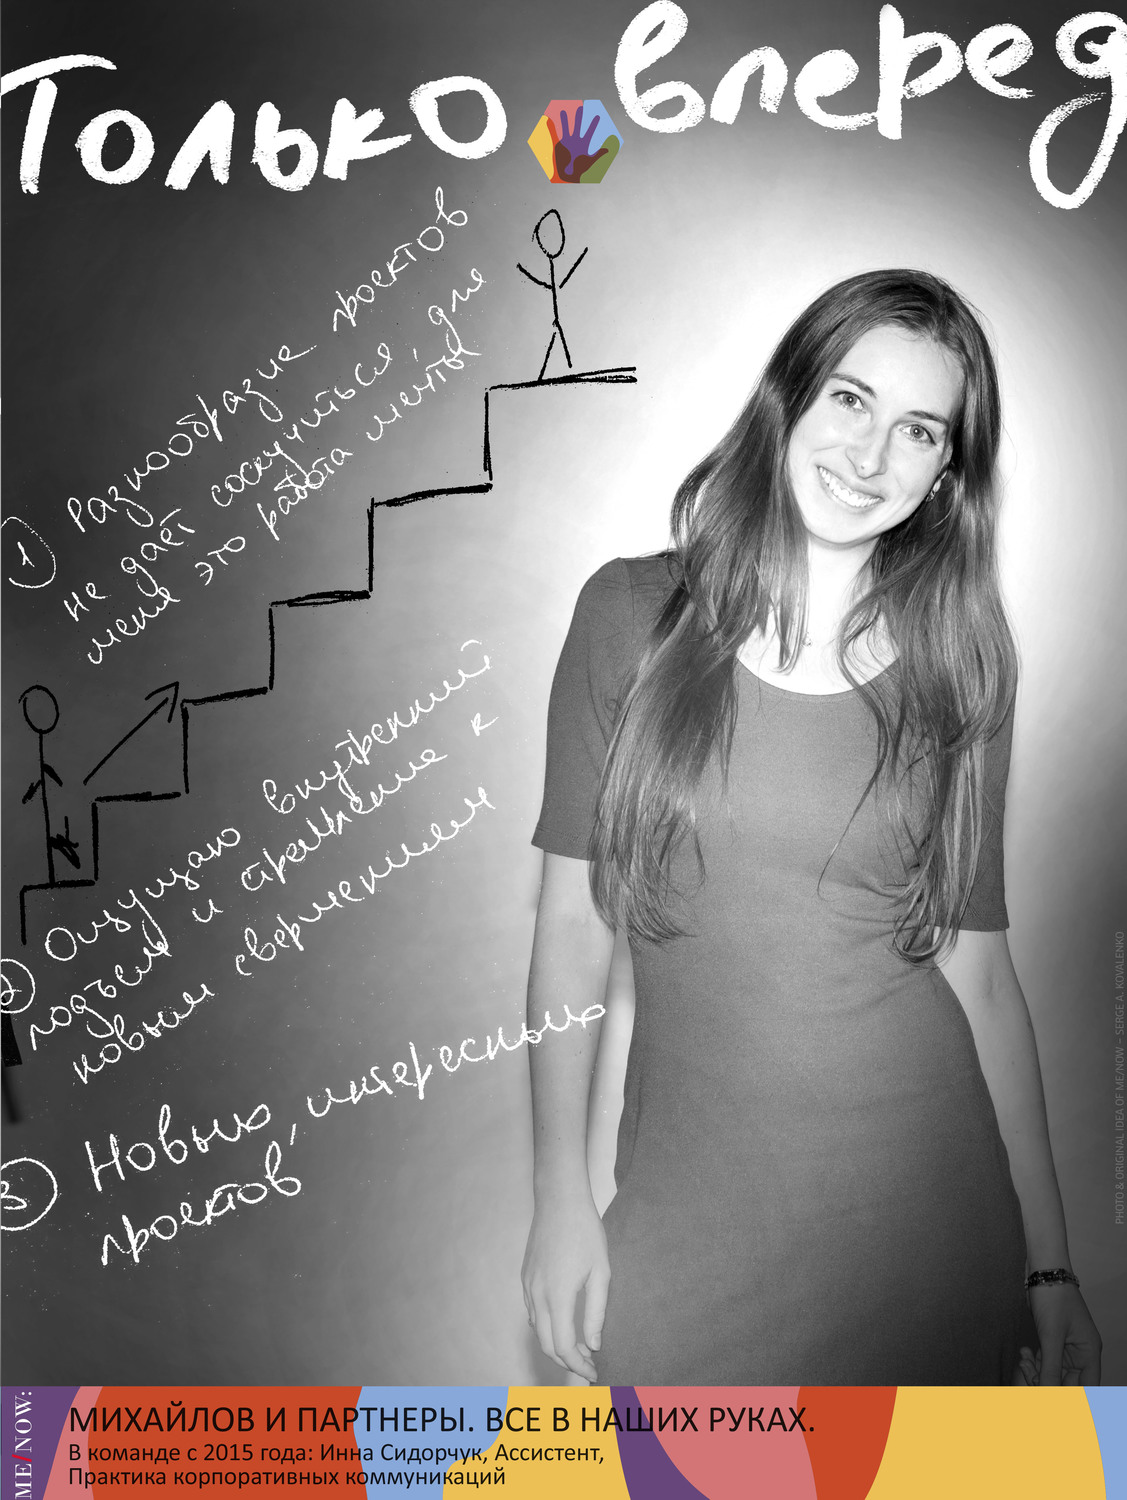 Только вперед
1 Разнообразие проектов
не даёт соскучиться, для
меня это работа мечты
2 Ощущаю внутренний
подъем и стремление к
новым свершениям
3 Новых, интересных
проектов
МИХАЙЛОВ И ПАРТНЕРЫ. ВСЕ В НАШИХ РУКАХ.
В команде с 2015 года: Инна Сидорчук, Ассистент,
Практика корпоративных коммуникаций
ME/NOW:
PHOTO & ORIGINAL IDEA OF ME/NOW – SERGE A. KOVALENKO